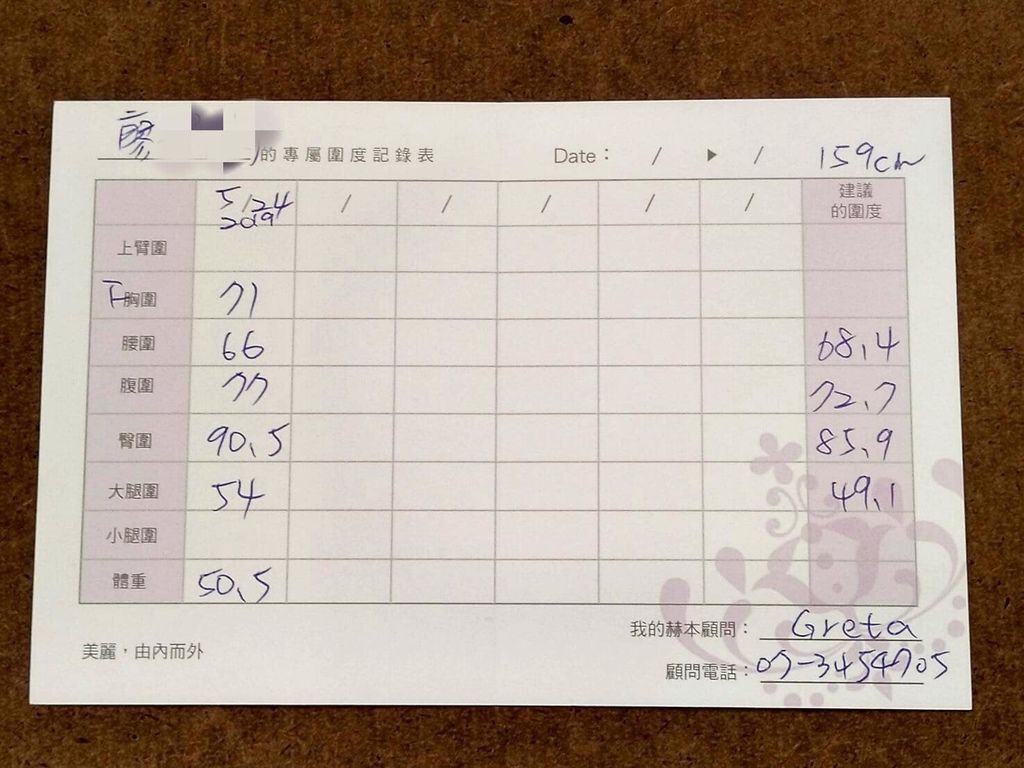 廖 的專屬圍度記錄表 Date： / ▶ / 159cm
5/24 / / / / / 建議
2019 的圍度
上臂圍
下胸圍 71
腰圍 66 68.4
腹圍 77 72.7
臀圍 90.5 85.9
大腿圍 54 49.1
小腿圍
體重 50.5
我的赫本顧問： Greta
美麗，由內而外
顧問電話： 07-3454705